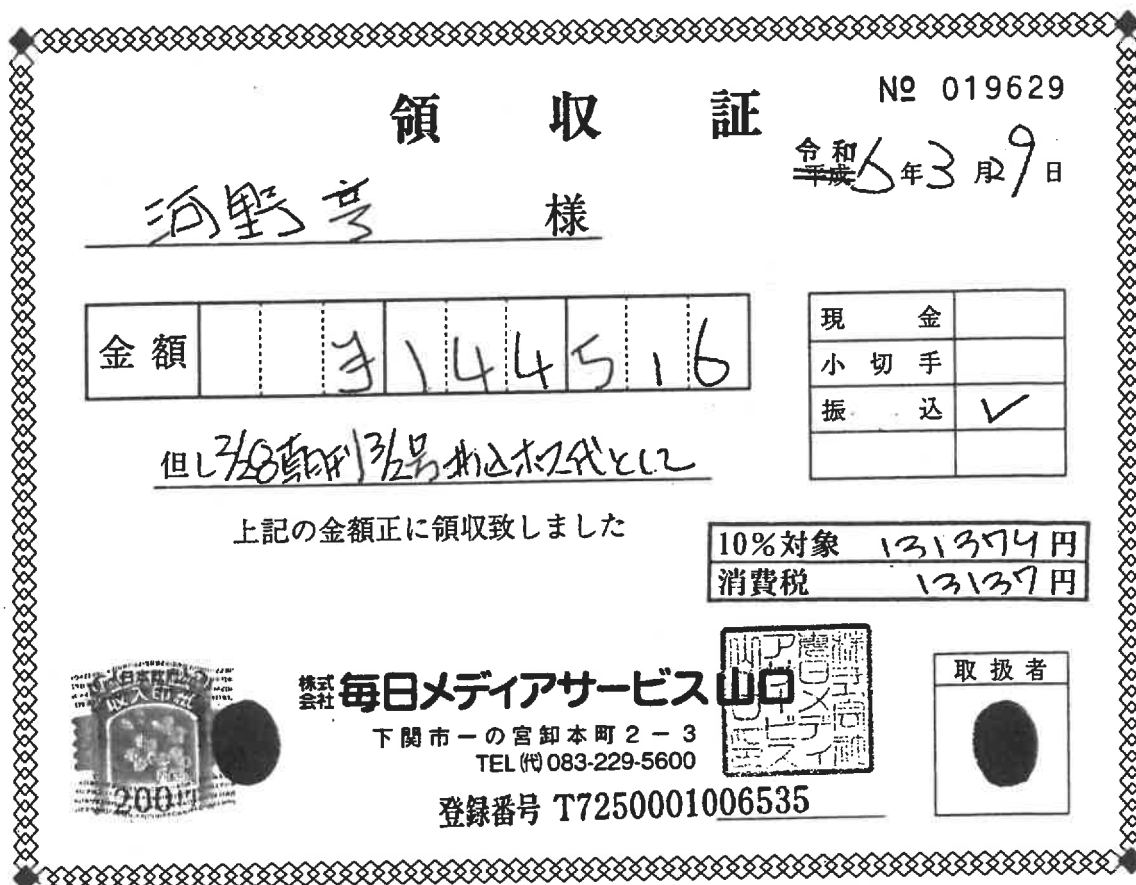 領収証
№ 019629
令和 平成 5年3月29日
河野 亨 様
金額 ¥144516
現金
小切手
振込 ✓
但し 2/28 3/2号 折込 代として
上記の金額正に領収致しました
10%対象 131374円
消費税 13137円
日本政府
収入印紙
200円
株式会社 毎日メディアサービス山口
下関市一の宮卸本町2-3
TEL(代)083-229-5600
登録番号 T7250001006535
取扱者